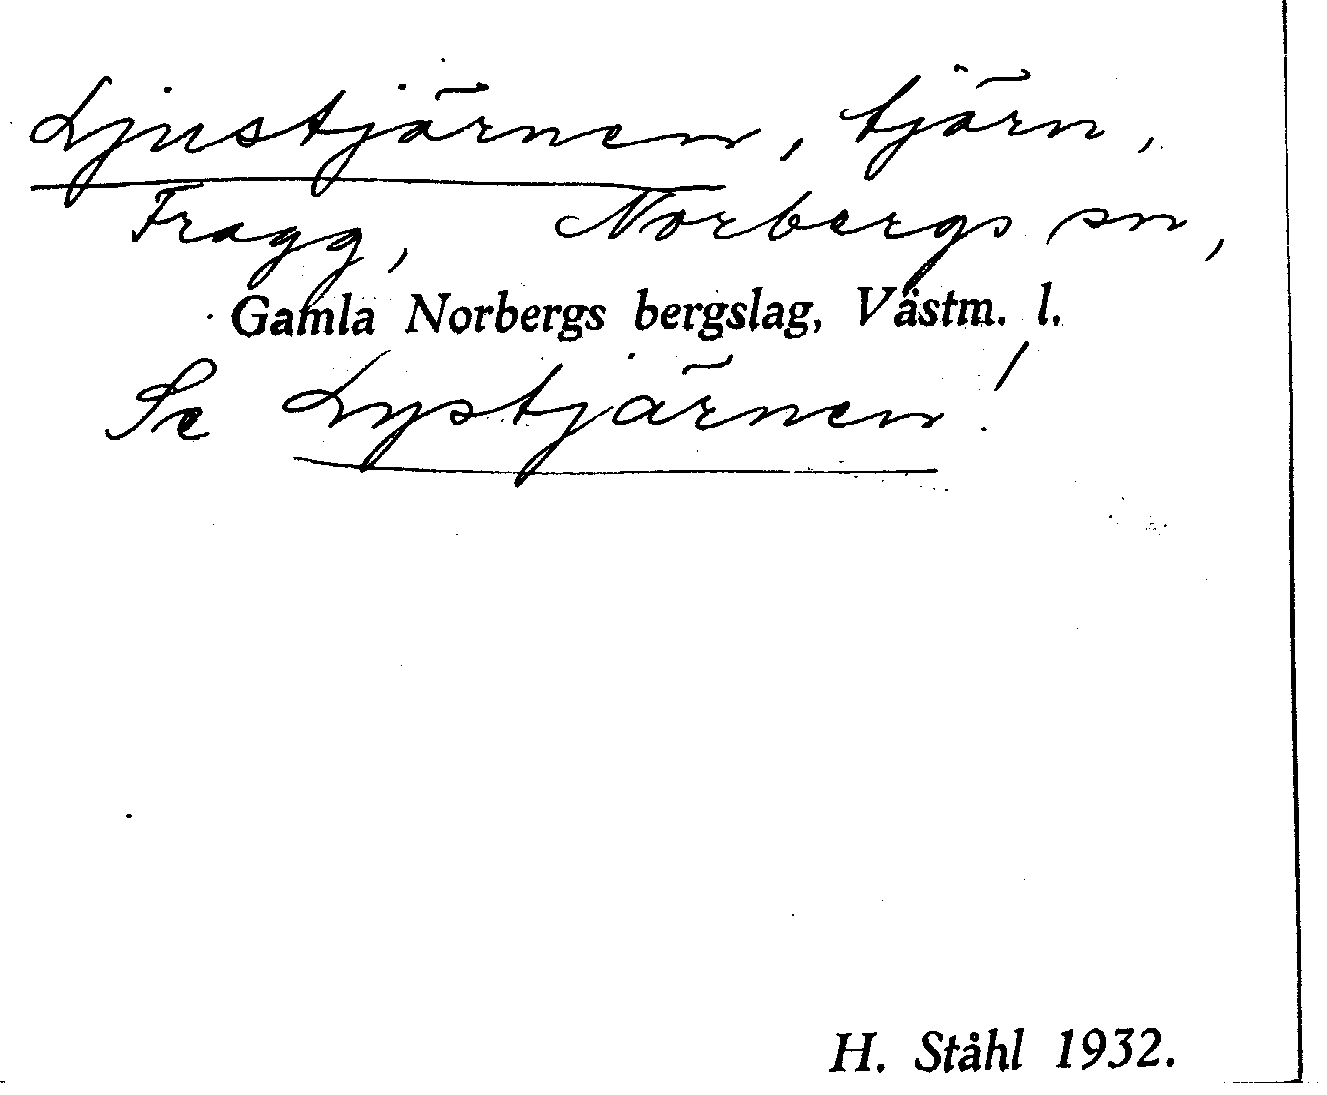 Ljustjärnen, tjärn,
Fragg, Norbergs sn,
Gamla Norbergs bergslag, Västm. l.
Se Lystjärnen!
H. Ståhl 1932.